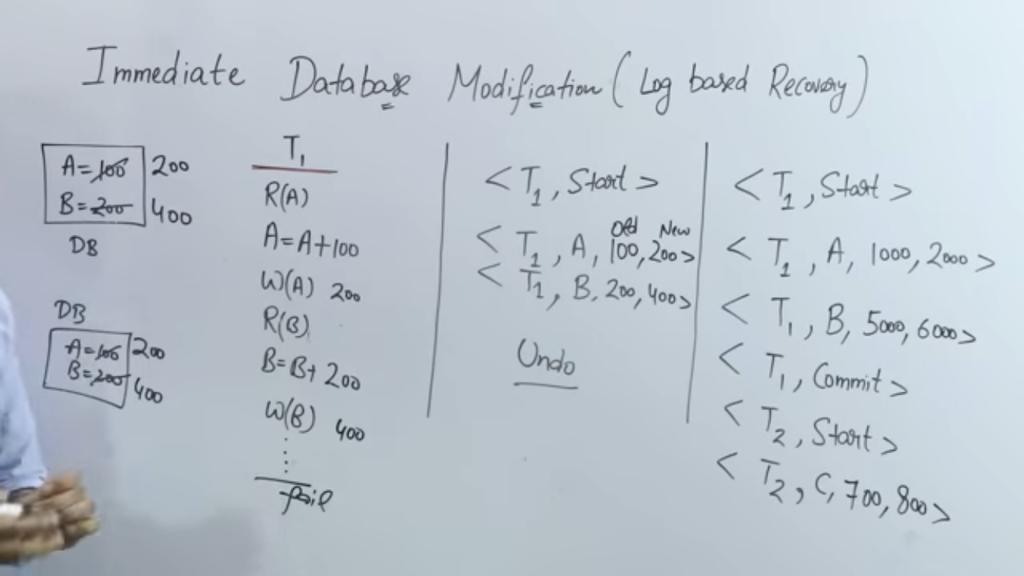 Immediate Database Modification (Log based Recovery)
A=100 200
B=200 400
DB
DB
A=100 200
B=200 400
T1
R(A)
A=A+100
W(A) 200
R(B)
B=B+200
W(B) 400
⋮
fail
<T1, Start>
Old New
<T1, A, 100, 200>
<T1, B, 200, 400>
Undo
<T1, Start>
<T1, A, 1000, 2000>
<T1, B, 5000, 6000>
<T1, Commit>
<T2, Start>
<T2, C, 700, 800>